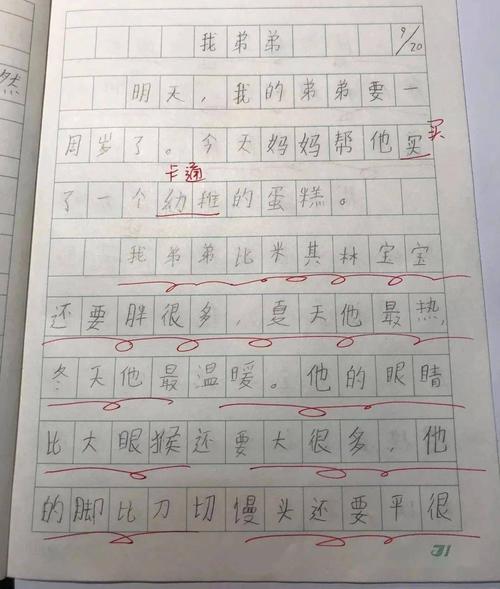 然
我弟弟 9/20
明天，我的弟弟要一
周岁了。今天妈妈帮他实 买
卡通
了一个幼推的蛋糕。
我弟弟比米其林宝宝
还要胖很多，夏天他最热，
冬天他最温暖。他的眼睛
比大眼猴还要大很多，他
的脚比刀切馒头还要平很
31